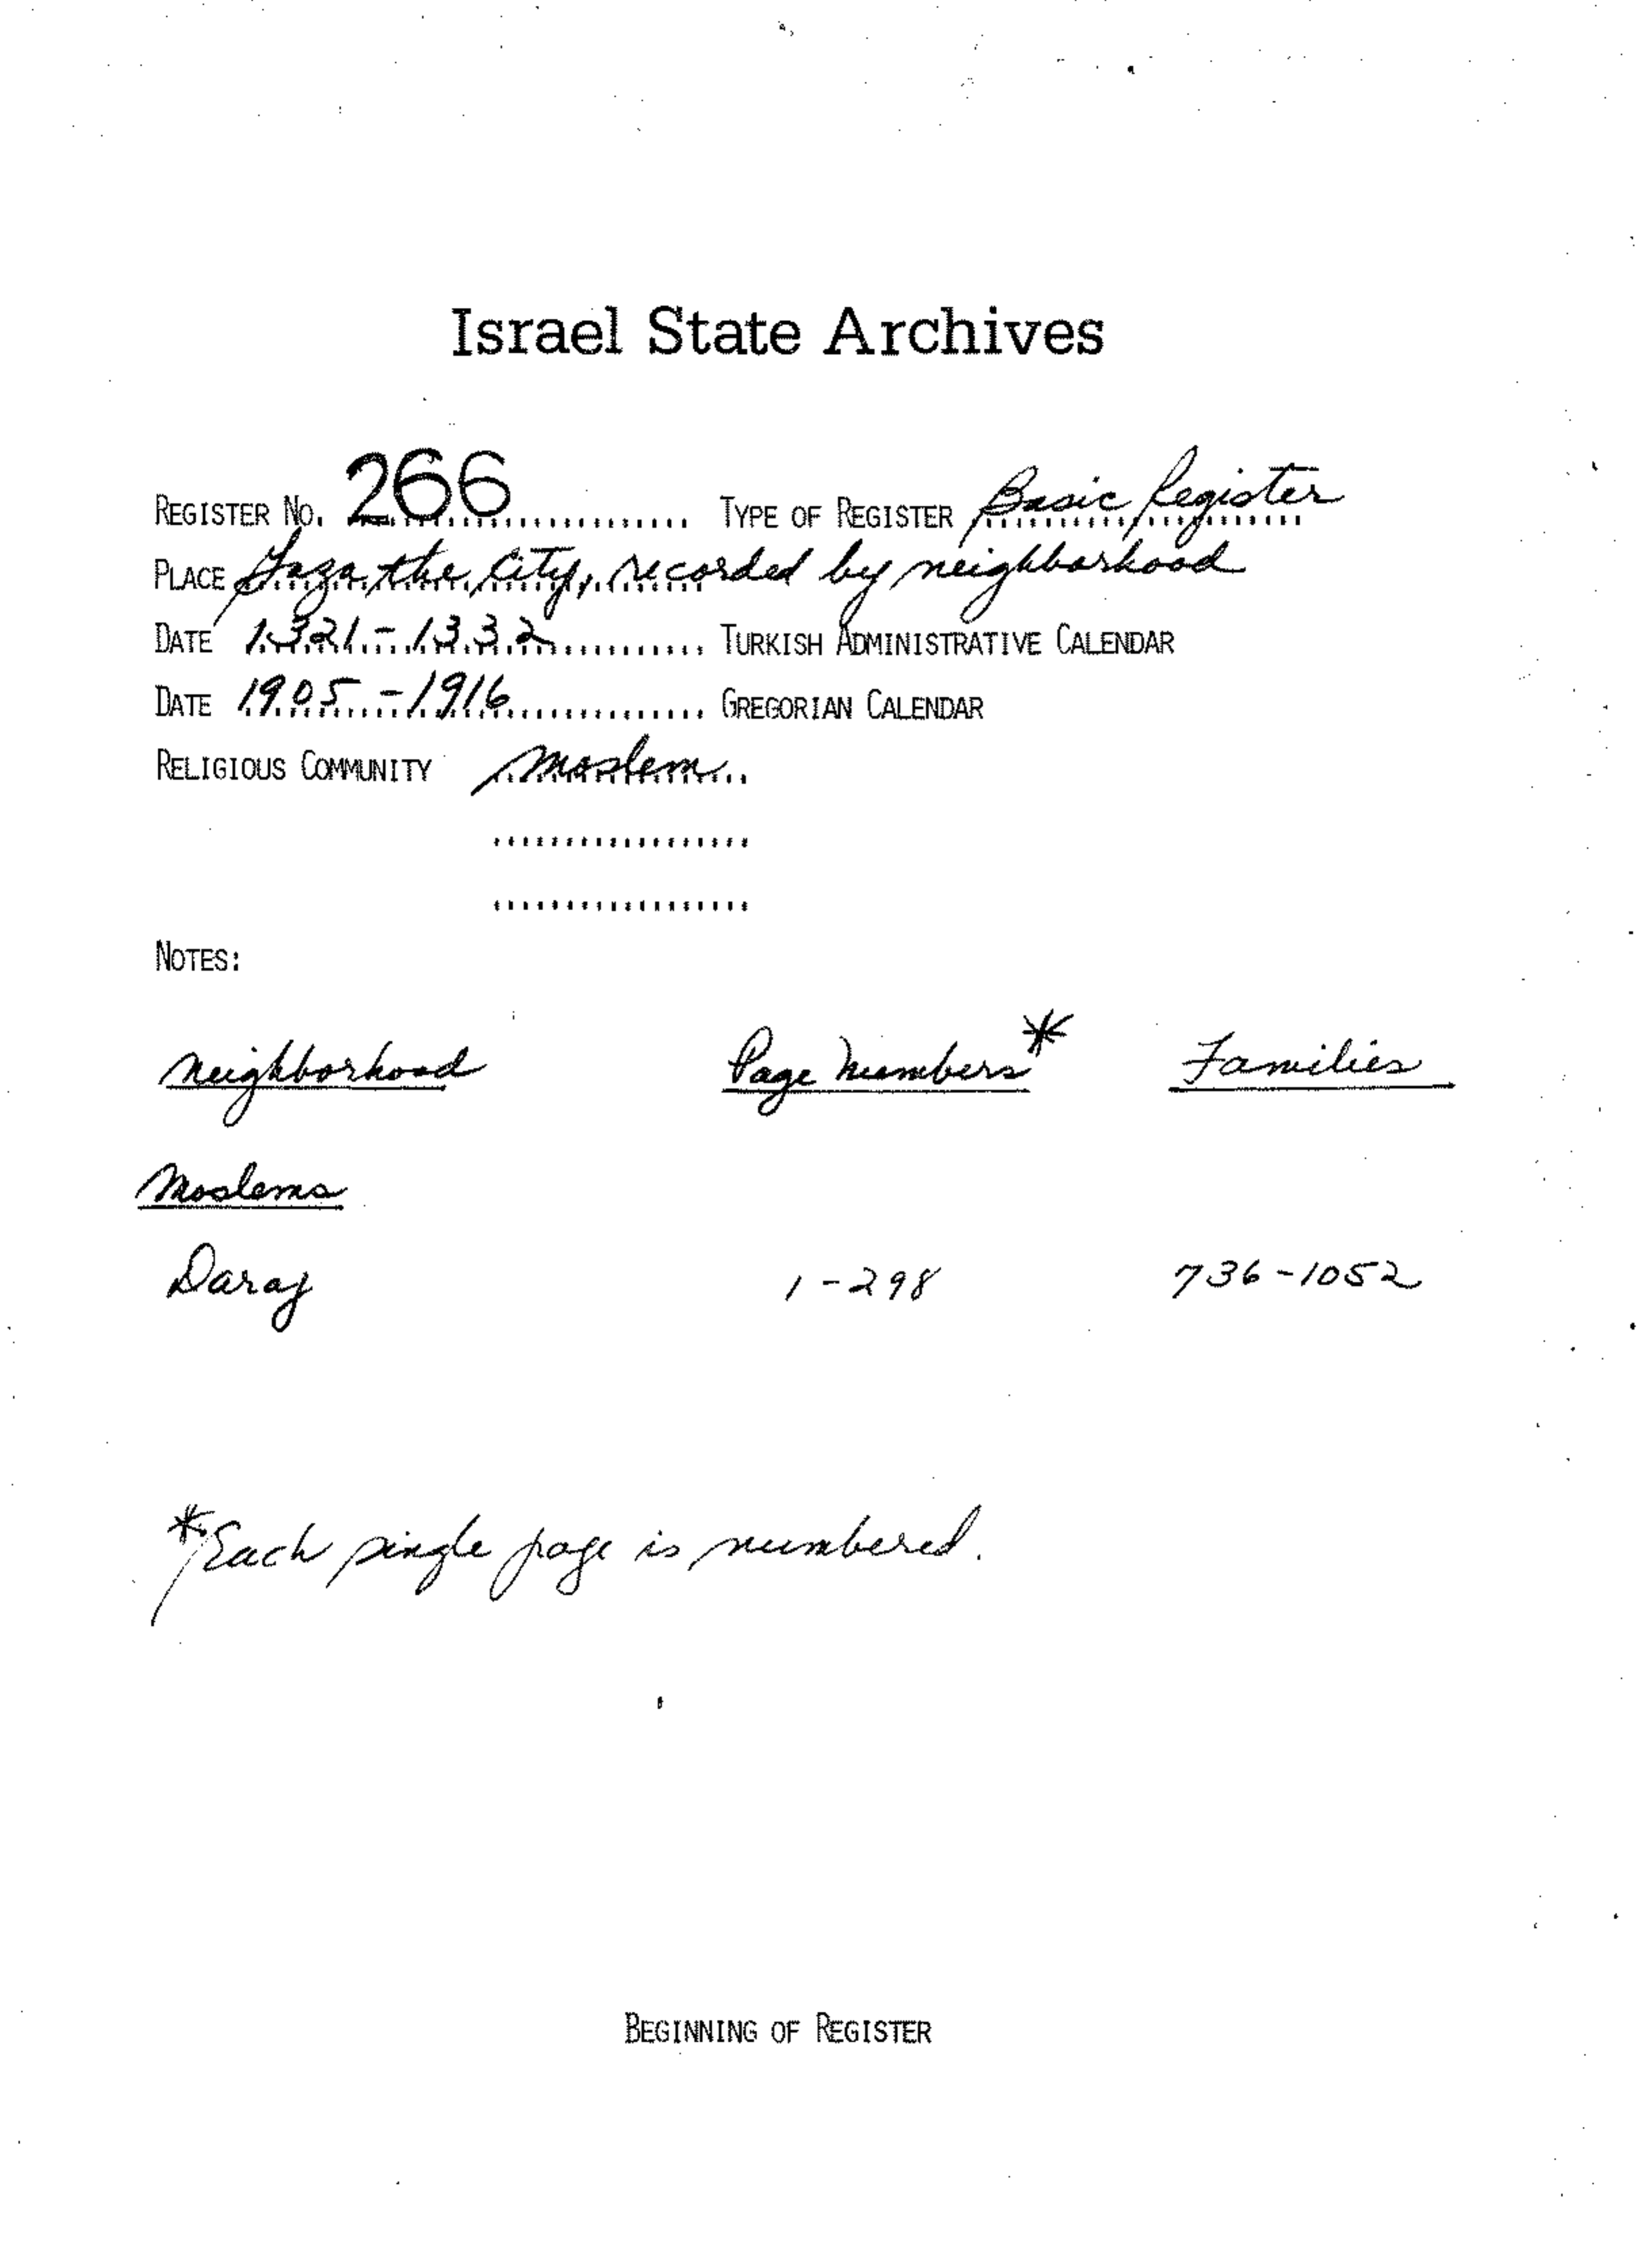 Israel State Archives
REGISTER NO. 266 TYPE OF REGISTER Basic Register
PLACE Gaza, the City, recorded by neighborhood
DATE 1321-1332 TURKISH ADMINISTRATIVE CALENDAR
DATE 1905-1916 GREGORIAN CALENDAR
RELIGIOUS COMMUNITY Moslem
NOTES:
Neighborhood Page Numbers* Families
Moslems
Daraj 1-298 736-1052
*Each single page is numbered.
BEGINNING OF REGISTER